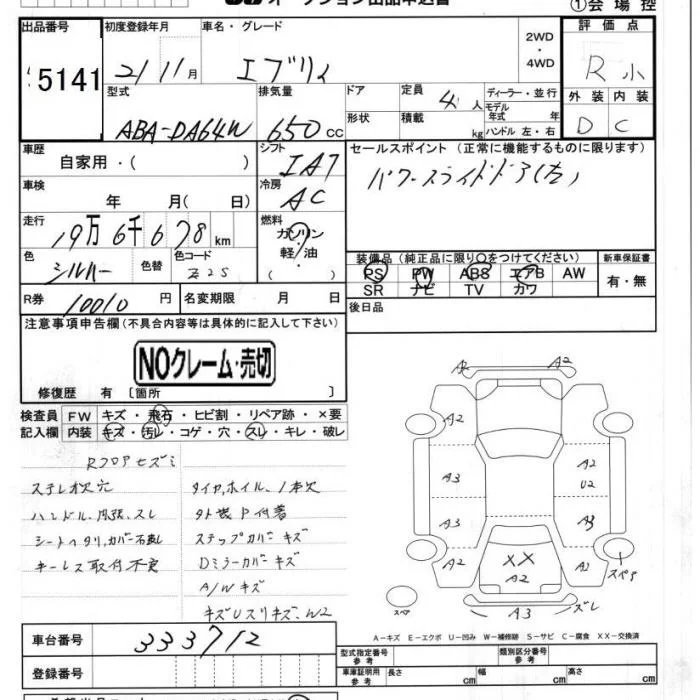 ①会場控
出品番号
初度登録年月
車名・グレード
2WD
・
4WD
評価点
5141
21 11月
エブリイ
R 小
型式
排気量
ドア
定員
4人
ディーラー・並行
モデル年式
年式
外装
内装
ABA-DA64W
650 cc
形状
積載
kg
ハンドル 左・右
D
C
車歴
自家用・( )
シフト
IA7
セールスポイント (正常に機能するものに限ります)
パワースライドドア(左)
車検
年 月( 日)
冷房
AC
走行
19万6千678km
燃料
ガソリン
・
軽油
色
シルバー
色替
色コード
Z2S
装備品 (純正品に限り○をつけてください)
新車保証書
PS PW ABS エアB AW
有・無
SR ナビ TV カワ
R券
10010円
名変期限 月 日
後日品
注意事項申告欄(不具合内容等は具体的に記入して下さい)
NOクレーム・売切
修復歴 有〔箇所 〕
検査員
記入欄
FW キズ・飛石・ヒビ割・リペア跡・×要
内装 キズ・汚レ・コゲ・穴・スレ・キレ・破レ
Rフロアヒズミ
ステレオ欠穴
タイヤ,ホイル、1本欠
ハンドル、内張、スレ
シートヘタリ,カバー
キーレス取付不良
ステップカバーキズ
Dミラーカバーキズ
A/Wキズ
A2
A2
A2
A3
A2
U2
A3
A3
A2
XX
A2
スペア
スペア
A3
ズレ
A－キズ E－エクボ U－凹み W－補修跡 S－サビ C－腐食 XX－交換済
車台番号
333712
登録番号
型式指定番号
参考
類別区分番号
参考
車庫証明用
参考
長さ cm
幅 cm
高さ cm